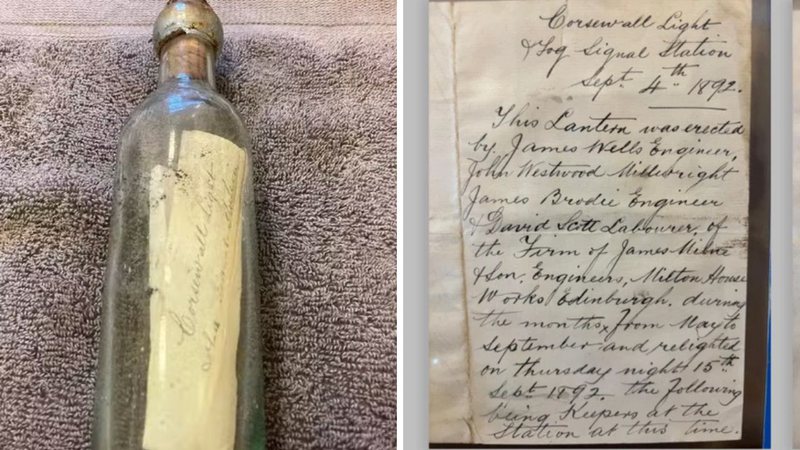 Corsewall Light
Corsewall Light
& Fog Signal Station
Sept. 4th 1892.
This Lantern was erected
by James Wells Engineer,
John Westwood Millwright
James Brodie Engineer
& David Scott Labourer, of
the Firm of James Milne
& Son, Engineers, Milton House
Works Edinburgh, during
the months, from May to
September and relighted
on Thursday night 15th
Sept 1892. the following
being Keepers at the
Station at this time.